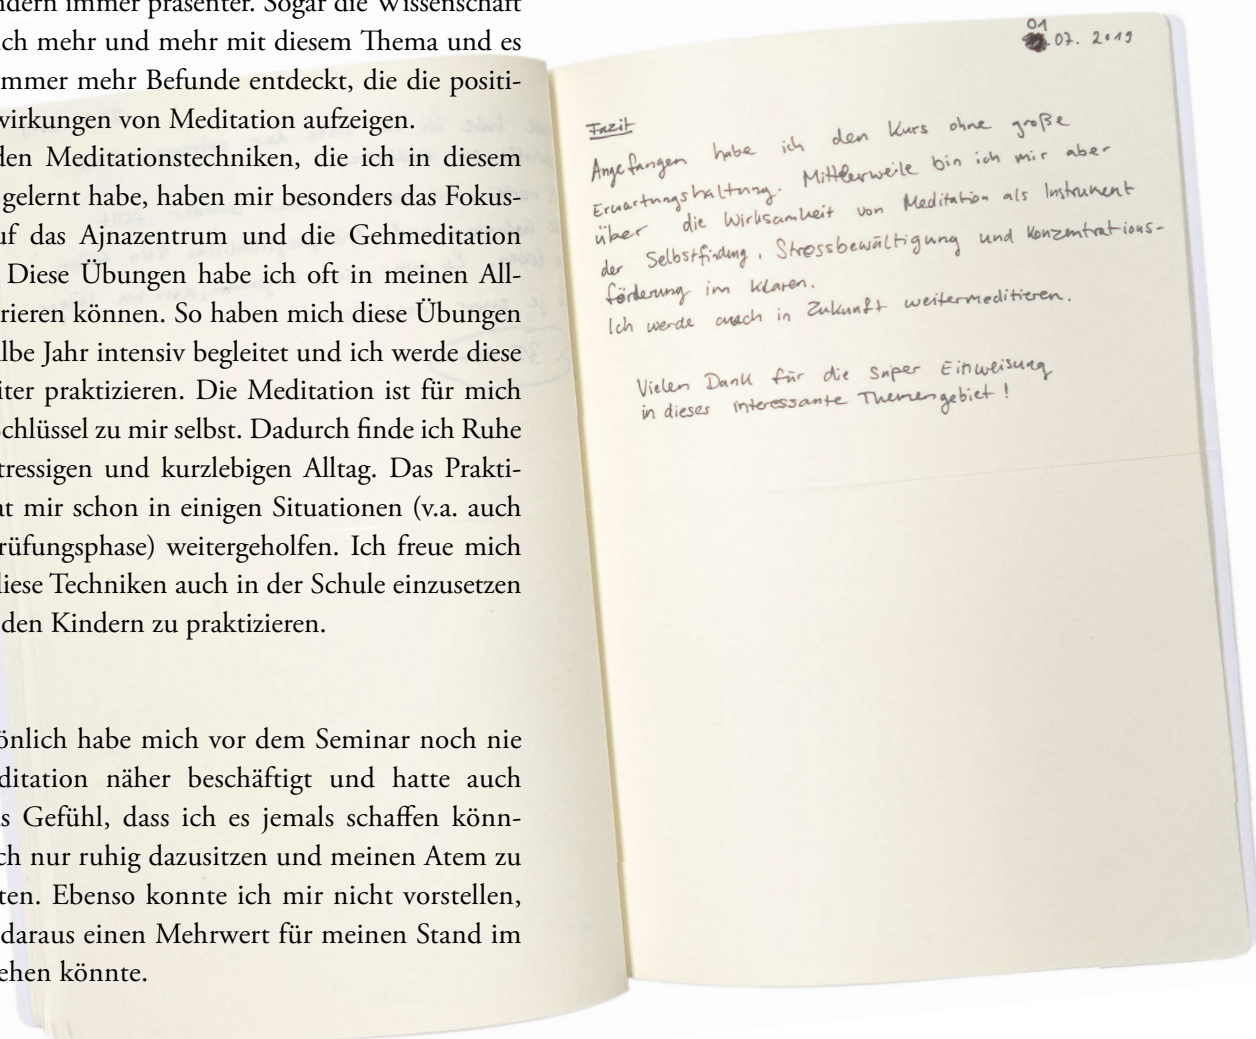 ndern immer präsenter. Sogar die Wissenschaft
ch mehr und mehr mit diesem Thema und es
mmer mehr Befunde entdeckt, die die positi-
wirkungen von Meditation aufzeigen.
den Meditationstechniken, die ich in diesem
gelernt habe, haben mir besonders das Fokus-
uf das Ajnazentrum und die Gehmeditation
Diese Übungen habe ich oft in meinen All-
rieren können. So haben mich diese Übungen
lbe Jahr intensiv begleitet und ich werde diese
iter praktizieren. Die Meditation ist für mich
chlüssel zu mir selbst. Dadurch finde ich Ruhe
tressigen und kurzlebigen Alltag. Das Prakti-
at mir schon in einigen Situationen (v.a. auch
rüfungsphase) weitergeholfen. Ich freue mich
liese Techniken auch in der Schule einzusetzen
den Kindern zu praktizieren.
önlich habe mich vor dem Seminar noch nie
ditation näher beschäftigt und hatte auch
s Gefühl, dass ich es jemals schaffen könn-
ch nur ruhig dazusitzen und meinen Atem zu
ten. Ebenso konnte ich mir nicht vorstellen,
daraus einen Mehrwert für meinen Stand im
ehen könnte.
01.07.2019
Fazit
Angefangen habe ich den Kurs ohne große
Erwartungshaltung. Mittlerweile bin ich mir aber
über die Wirksamkeit von Meditation als Instrument
der Selbstfindung, Stressbewältigung und Konzentrations-
förderung im Klaren.
Ich werde auch in Zukunft weitermeditieren.
Vielen Dank für die super Einweisung
in dieses interessante Themengebiet!